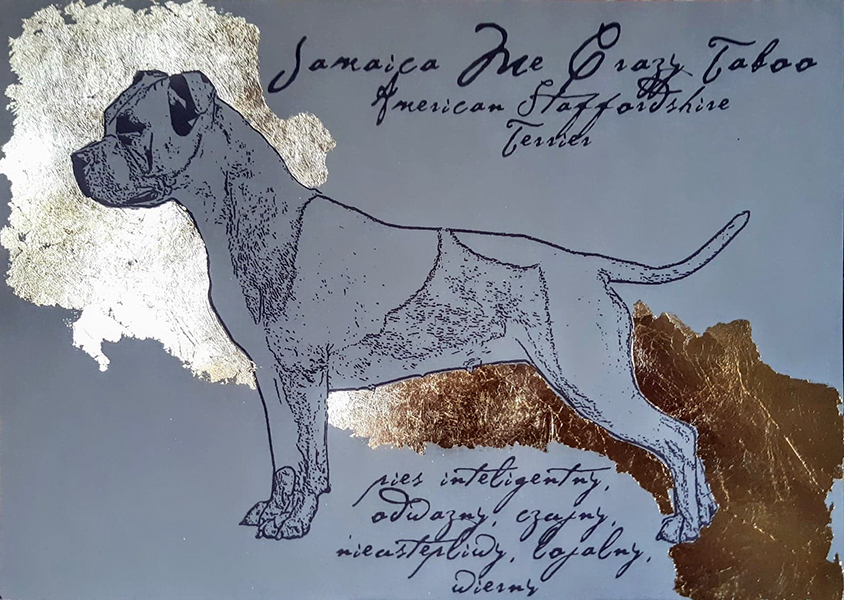 Jamaica Me Crazy Taboo
American Staffordshire
Terrier
pies inteligentny,
odważny, czujny,
nieustępliwy, lojalny,
wierny